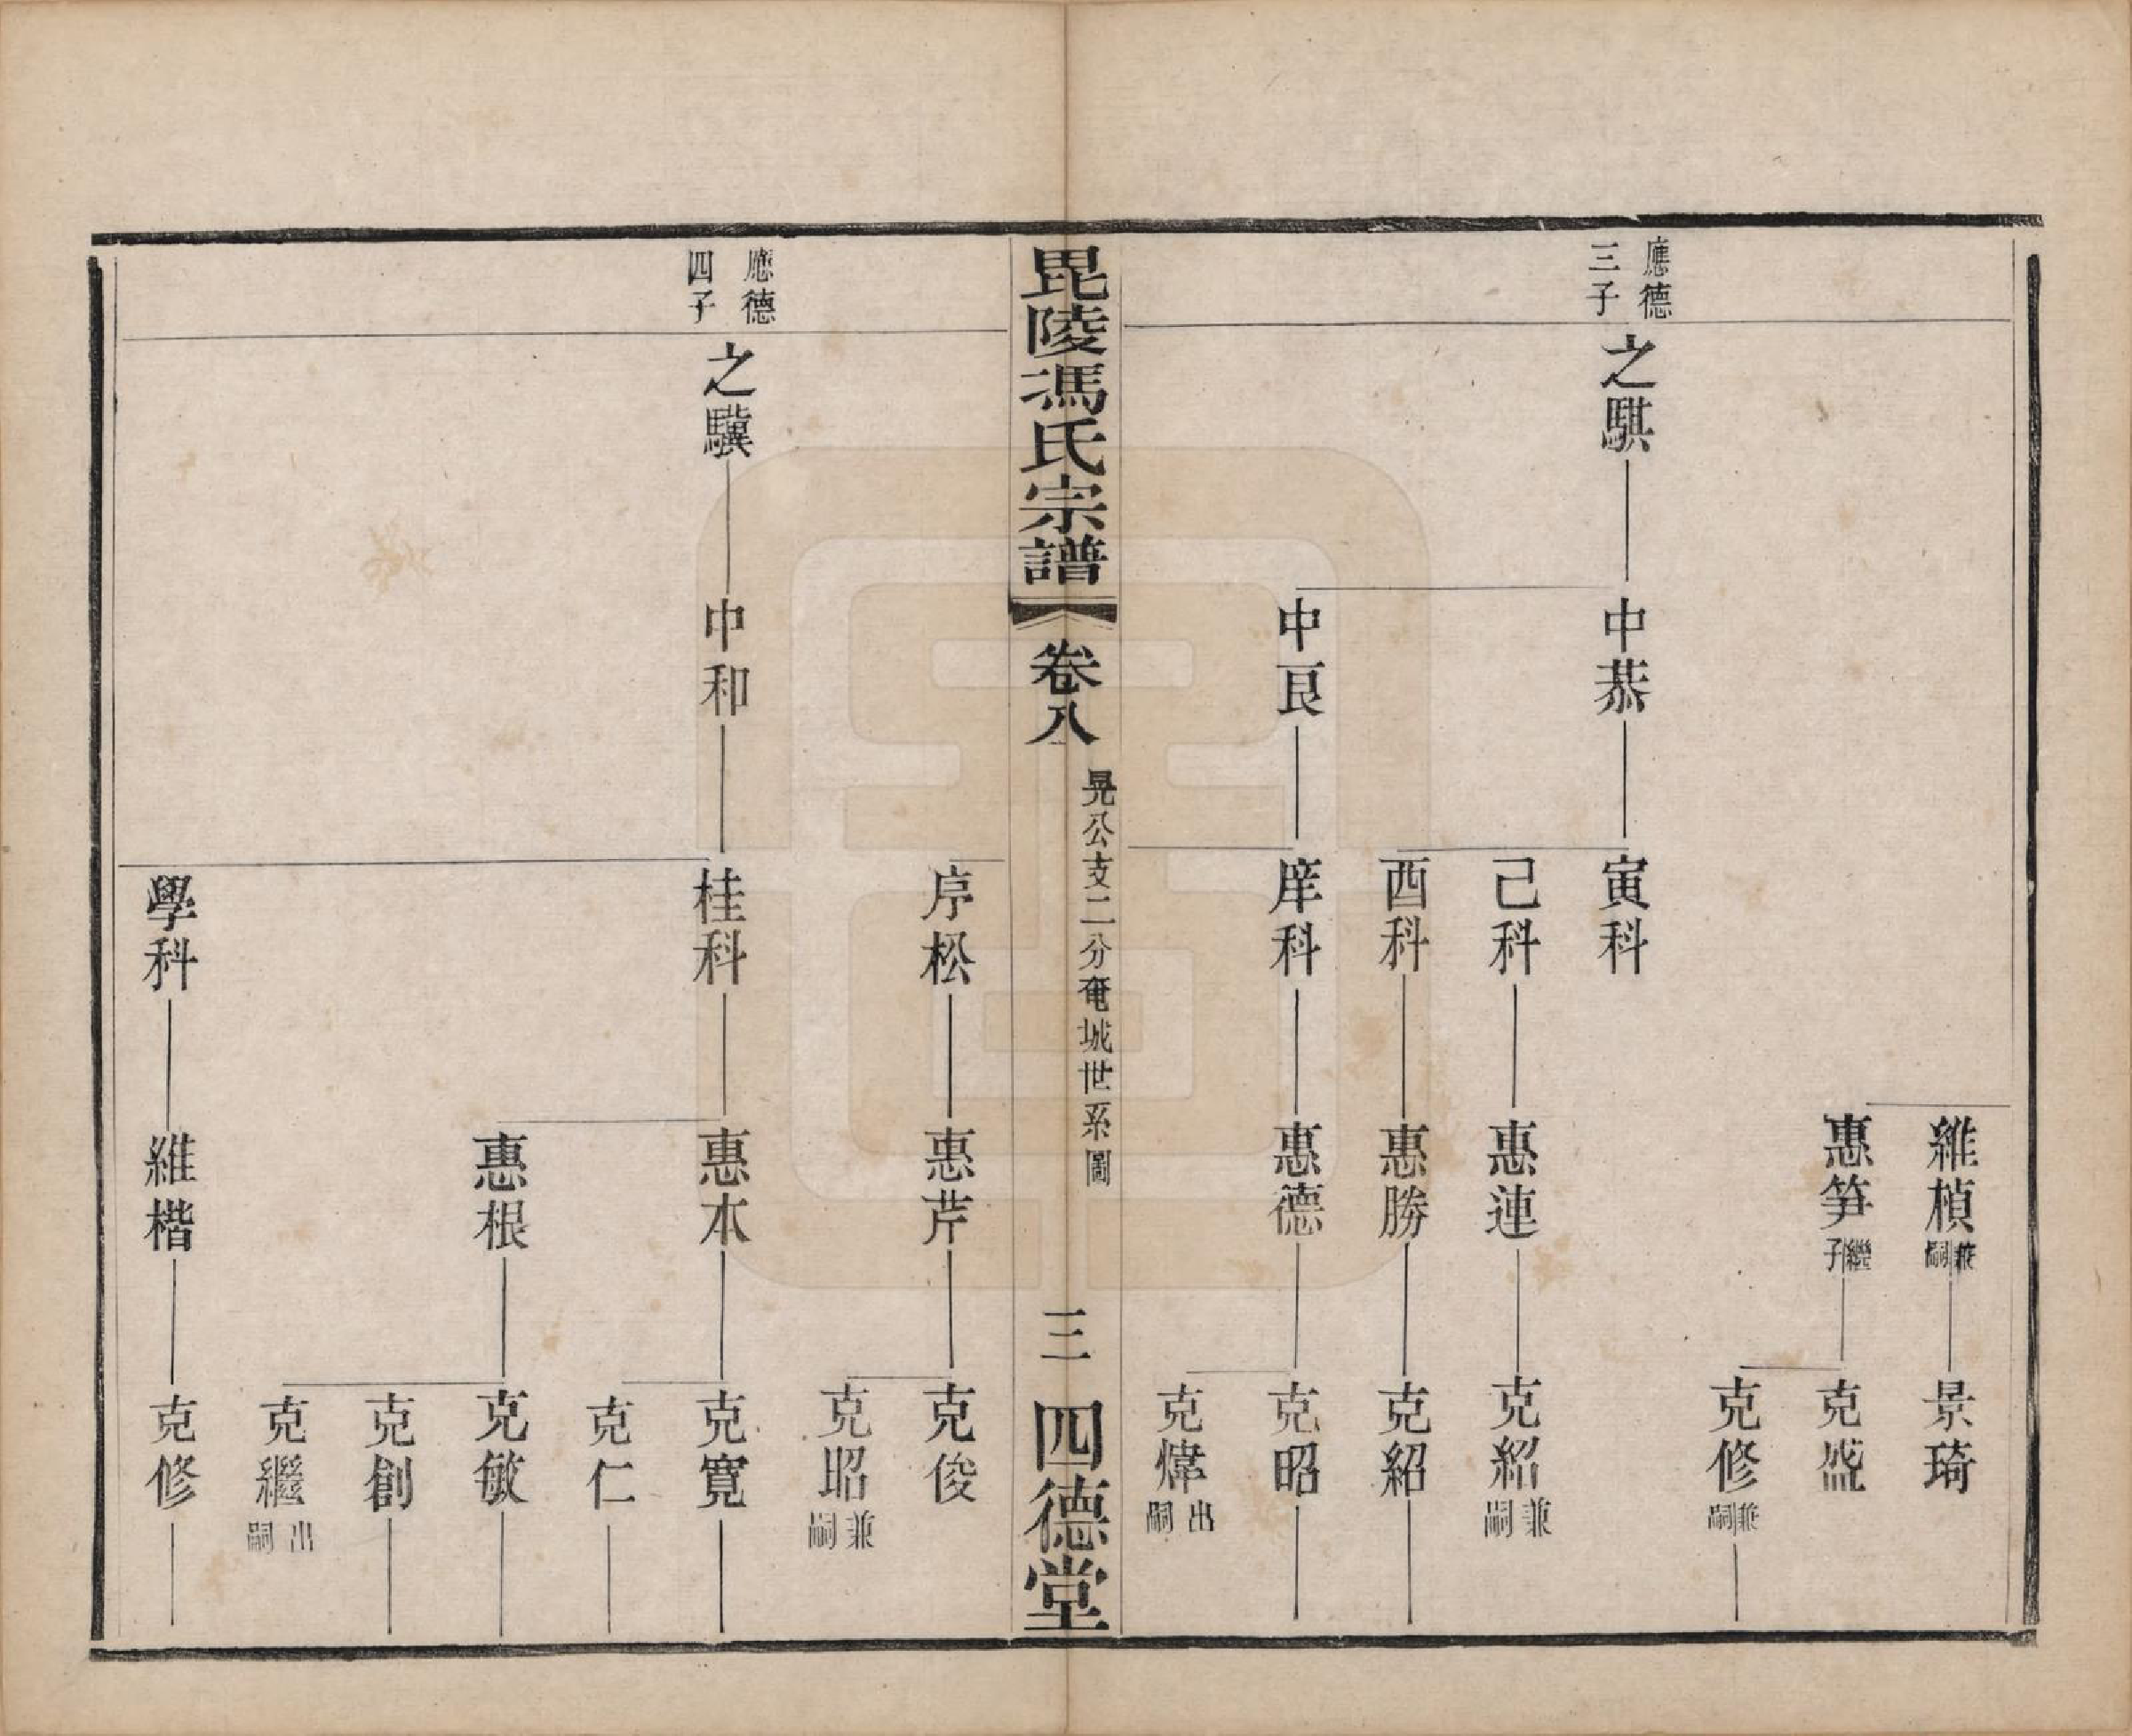 維楨兼嗣
景琦
惠笋繼子
克盛
克修兼嗣
應德三子
之騏
中恭
寅科
己科
惠連
克紹兼嗣
酉科
惠勝
克紹
中艮
庠科
惠德
克昭
克煒出嗣
毘陵馮氏宗譜
卷八
晃公支二分奄城世系圖
三
四德堂
序松
惠芹
克俊
克昭兼嗣
應德四子
之驥
中和
桂科
惠本
克寬
克仁
惠根
克敏
克創
克繼出嗣
學科
維楷
克修